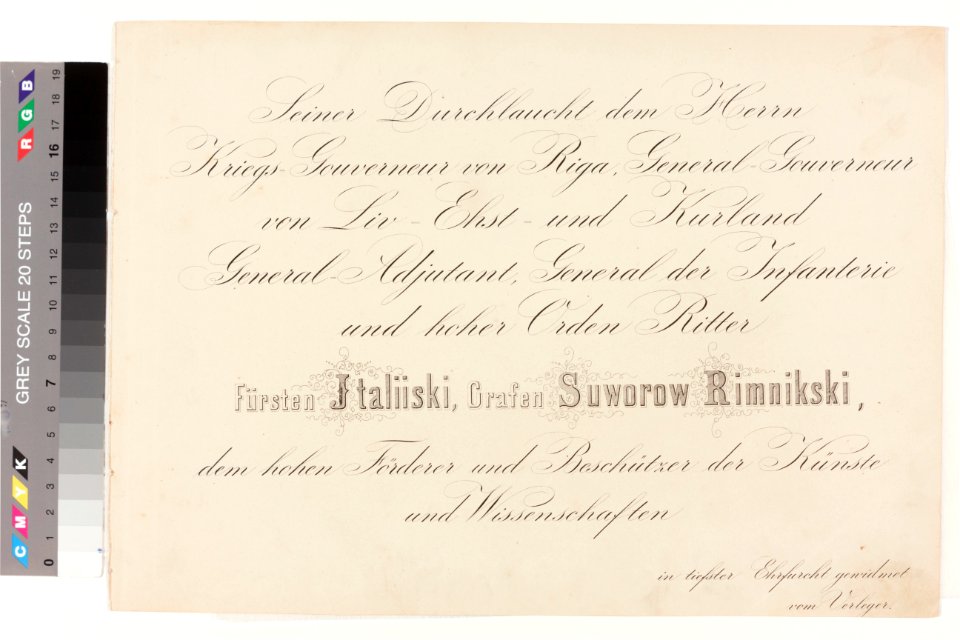 Seiner Durchlaucht dem Herrn
Kriegs-Gouverneur von Riga, General-Gouverneur
von Liv-Ehst-und Kurland
General-Adjutant, General der Infanterie
und hoher Orden Ritter
Fürsten Italiiski, Grafen Suworow Rimnikski,
dem hohen Förderer und Beschützer der Künste
und Wissenschaften
in tiefster Ehrfurcht gewidmet
vom Verleger.
GREY SCALE 20 STEPS
R G B
C M Y K
0 1 2 3 4 5 6 7 8 9 10 11 12 13 14 15 16 17 18 19